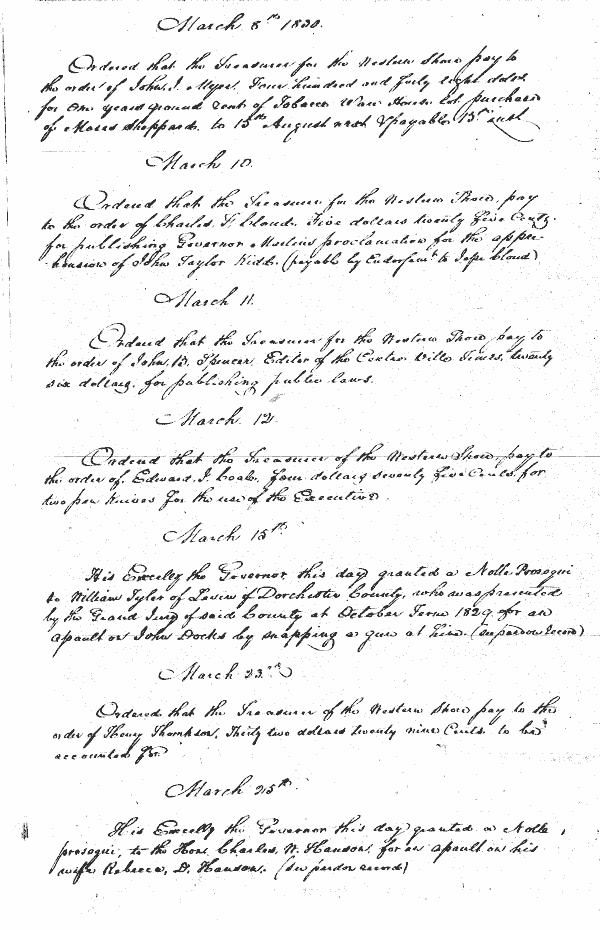 March 8th 1830.
Ordered that the Treasurer for the Western Shore pay to
the order of John. J. Myer. Four hundred and forty eight dolls.
for One years ground rent of Tobacco Ware House lot. purchasd
of Moses Sheppard. to 15th August next payable 15th inst
March 10.
Ordered that the Treasurer for the Western Shore, pay
to the order of Charles F. Cloud. Five dollars twenty five Cents.
for publishing Governor Martins proclamation for the appre-
hension of John Taylor Kidd. (payable by Endorsemt to Jesse Cloud)
March 11.
Ordered that the Treasurer for the Western Shore, pay to
the order of John B. Spencer. Editor of the Centre Ville Times, twenty
six dollars. for publishing public laws.
March 12
Ordered that the Treasurer of the Western Shore, pay to
the order of Edward J. Coale, four dollars seventy five Cents, for
two pen Knives for the use of the Executive.
March 15th
His Excelly the Governor this day granted a Nolle Prosequi
to William Tyler of Levin of Dorchester County, who was presented
by the Grand Jury of said County at October Term 1829. for an
assault on John Docks by snapping a gun at him. (see pardon record)
March 23rd
Ordered that the Treasurer of the Western Shore pay to the
order of Henry Thompson, Thirty two dollars twenty nine Cents. to be
accounted for
March 25th
His Excelly the Governor this day granted a Nolle
prosequi, to the Hon. Charles W. Hanson, for an assault on his
wife Rebecca, D. Hanson. (see pardon record)